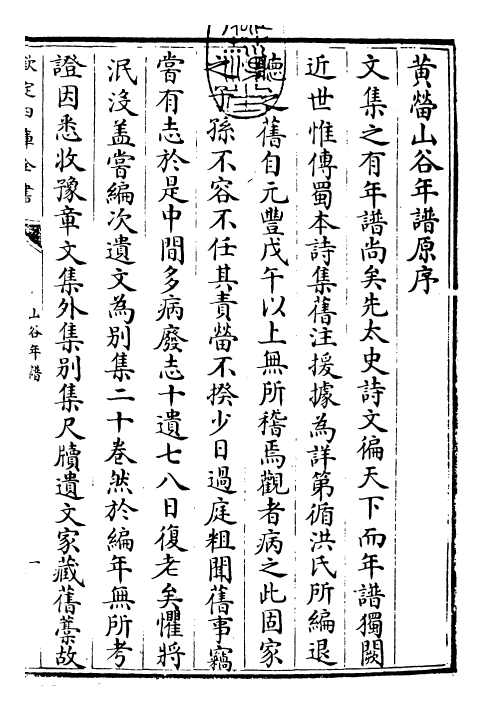 黄㽦山谷年譜原序
文集之有年譜尚矣先太史詩文徧天下而年譜獨闕
近世惟傳蜀本詩集舊注援據為詳第循洪氏所編退
聽之舊自元豐戊午以上無所稽焉觀者病之此固家
之子孫不容不任其責㽦不揆少日過庭粗聞舊事竊
嘗有志於是中間多病廢志十遺七八日復老矣懼將
泯沒盖嘗編次遺文為別集二十卷然於編年無所考
證因悉收豫章文集外集别集尺牘遺文家藏舊藁故
欽定四庫全書
山谷年譜
一